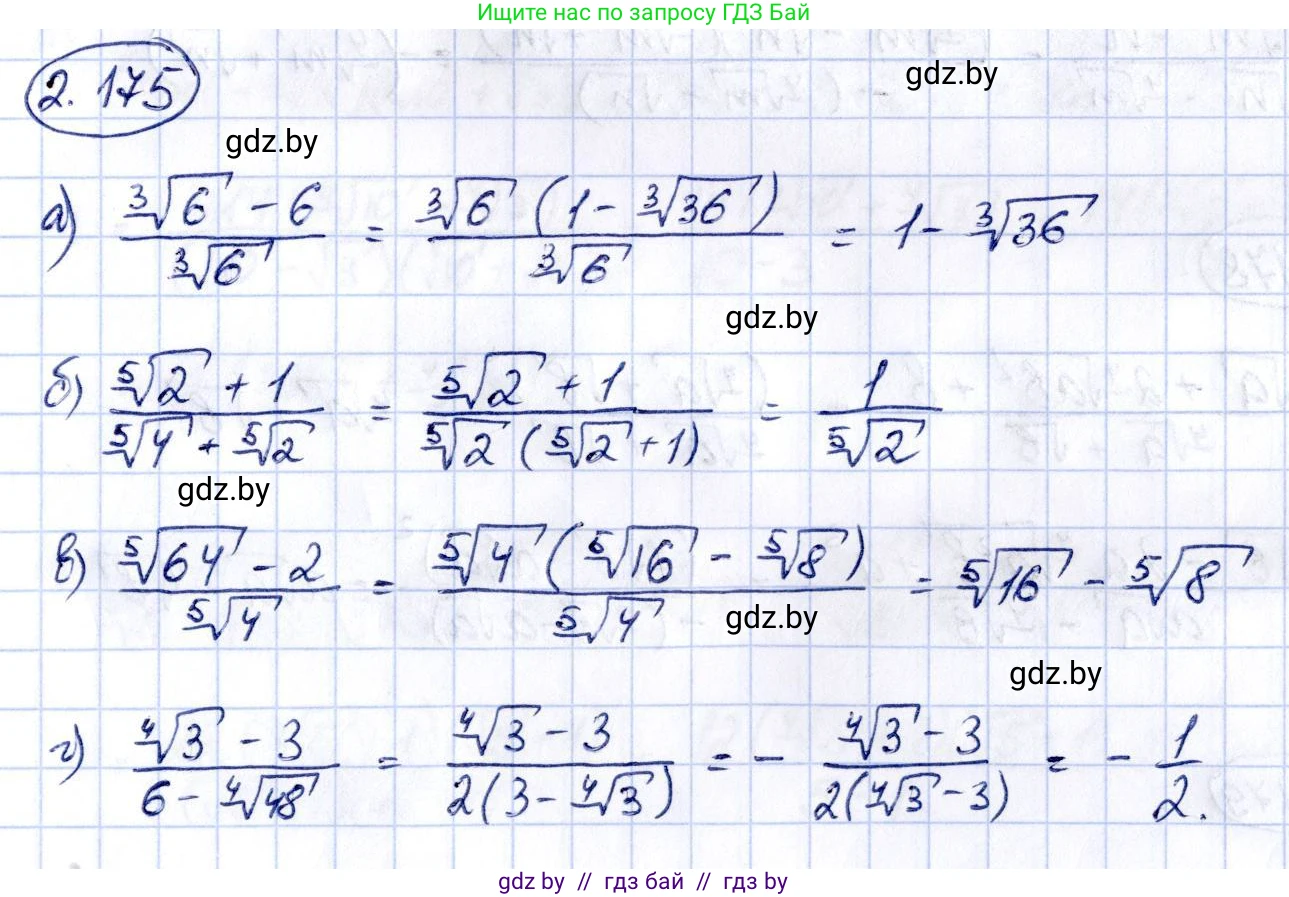 Ищите нас по запросу ГДЗ Бай
2.175
gdz.by
gdz.by
а) (∛6 - 6)/∛6 = ∛6 (1 - ∛36)/∛6 = 1 - ∛36
gdz.by
б) (⁵√2 + 1)/(⁵√4 + ⁵√2) = (⁵√2 + 1)/(⁵√2 (⁵√2 + 1)) = 1/⁵√2
gdz.by
в) (⁵√64 - 2)/⁵√4 = ⁵√4 (⁵√16 - ⁵√8)/⁵√4 = ⁵√16 - ⁵√8
gdz.by
gdz.by
г) (⁴√3 - 3)/(6 - ⁴√48) = (⁴√3 - 3)/(2(3 - ⁴√3)) = - (⁴√3 - 3)/(2(⁴√3 - 3)) = - 1/2.
gdz by // гдз бай // гдз by